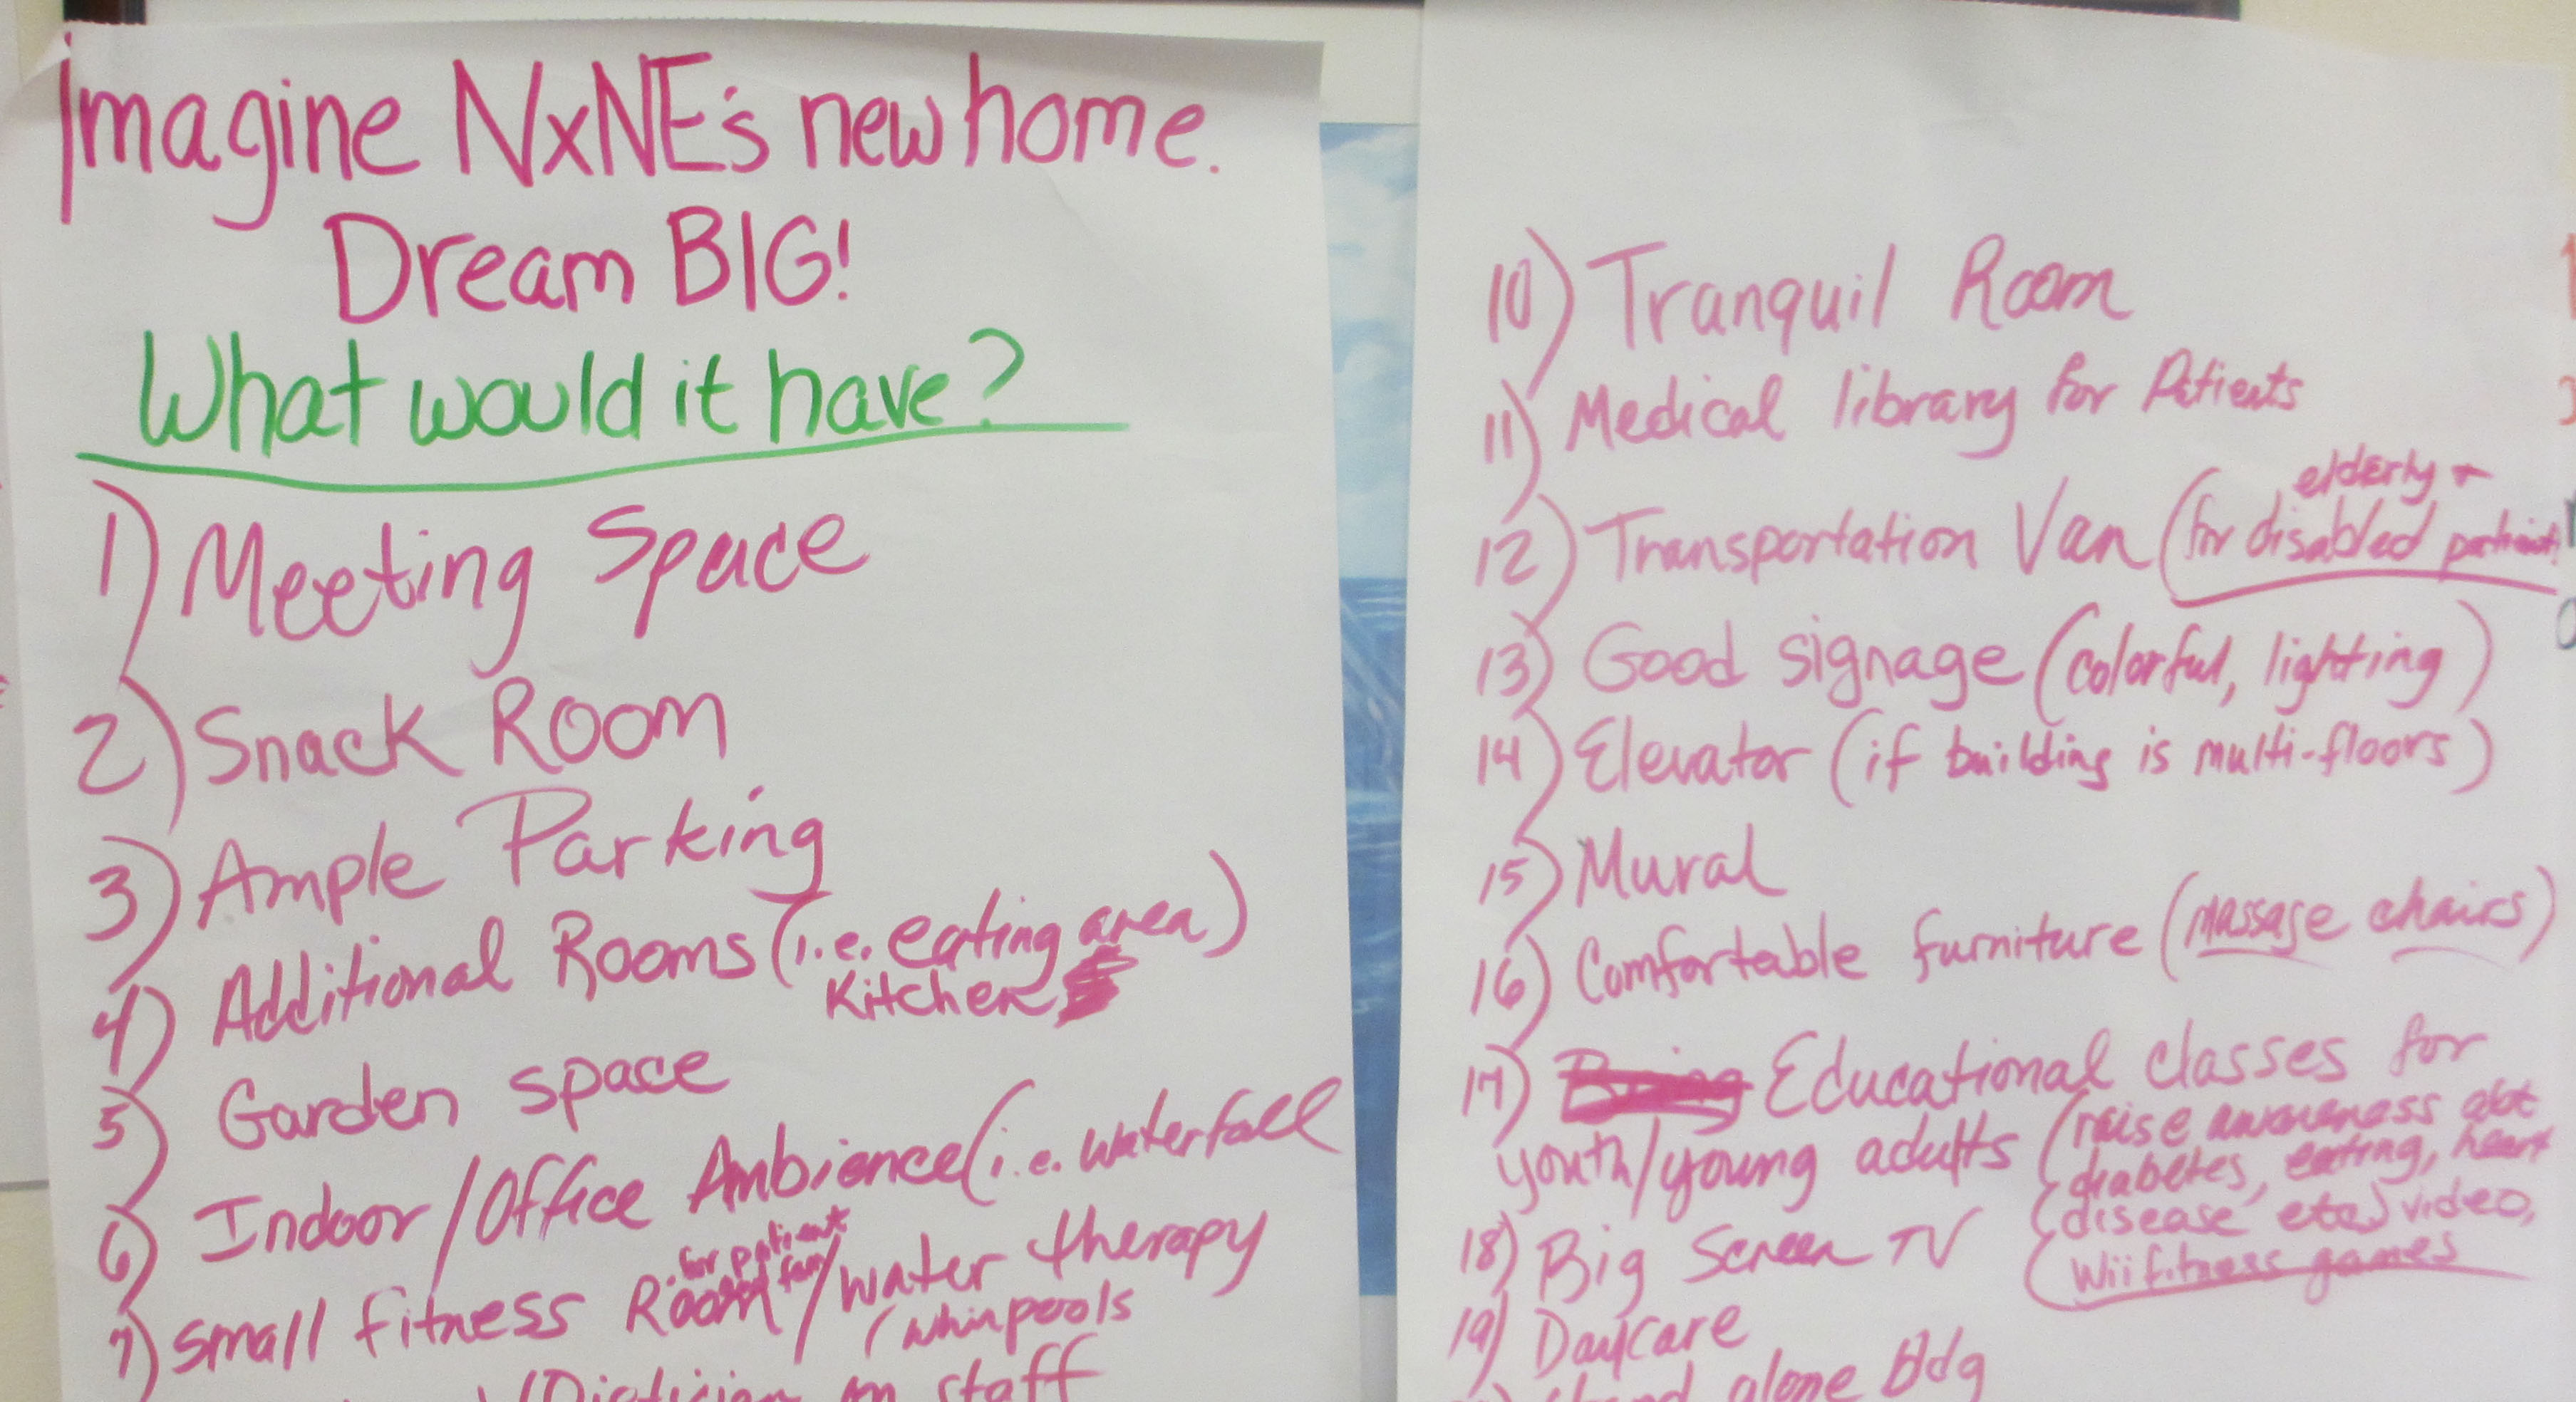 Imagine NxNE's new home.
Dream BIG!
What would it have?
1) Meeting Space
2) Snack Room
3) Ample Parking
4) Additional Rooms (i.e. eating area)
Kitchen
5) Garden space
6) Indoor/Office Ambience (i.e. waterfall
for patient
7) Small fitness Room fam/water therapy
(whirlpools
/Dietician on staff
10) Tranquil Room
11) Medical library for Patients
elderly +
12) Transportation Van (for disabled patients
13) Good signage (colorful, lighting)
14) Elevator (if building is multi-floors)
15) Mural
16) Comfortable furniture (massage chairs)
17) Educational classes for
youth/young adults (raise awareness abt
diabetes, eating, heart
disease etc) video,
Wii fitness games
18) Big Screen TV
19) Daycare
Stand alone Bldg